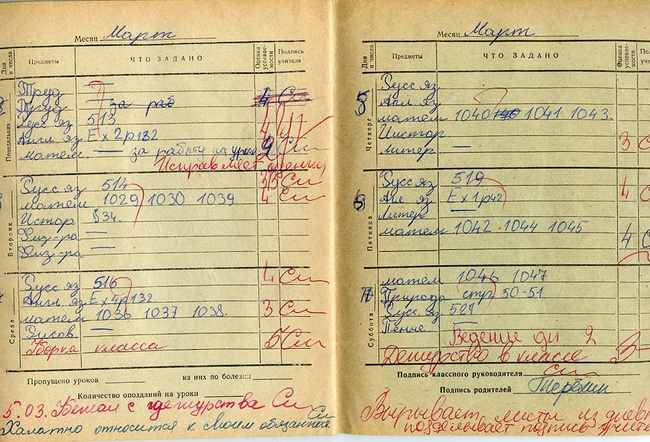 Месяц Март
Дни и числа
Предметы
ЧТО ЗАДАНО
Оценка успеваемости
Подпись учителя
Понедельник
Труд
Труд — за раб 4
Русс яз 513 4
Англ яз Ех 2р132
матем — за работу на уроке 2
Исправляет оценки
Вторник
Русс яз 514
матем 1029 1030 1039 4
Истор §34.
Физ-ра —
Физ-ра —
Среда
Русс яз 516 4
Англ яз Ех4р132
матем 1036 1037 1038. 3
Рисов —
Уборка класса 5
Пропущено уроков
из них по болезни
Количество опозданий на уроки
5.03. Бежал с дежурства
Халатно относится к своим обязанностям
Месяц Март
Дни и числа
Предметы
ЧТО ЗАДАНО
Оценка успеваемости
Подпись учителя
Четверг
Русс яз
Англ яз
матем 1040 1041 1043.
Истор
литер — 3
Пятница
Русс яз 519 4
Англ яз Ех1р42
литер —
матем 1042 - 1044 1045 4
Суббота
матем 1046 1047
Природа стр 50-51
Русс яз 521
Пение —
Ведение дн 2
Дежурство в классе
Подпись классного руководителя
Подпись родителей
Вырывает листы из дневника
подделывает подпись учителя